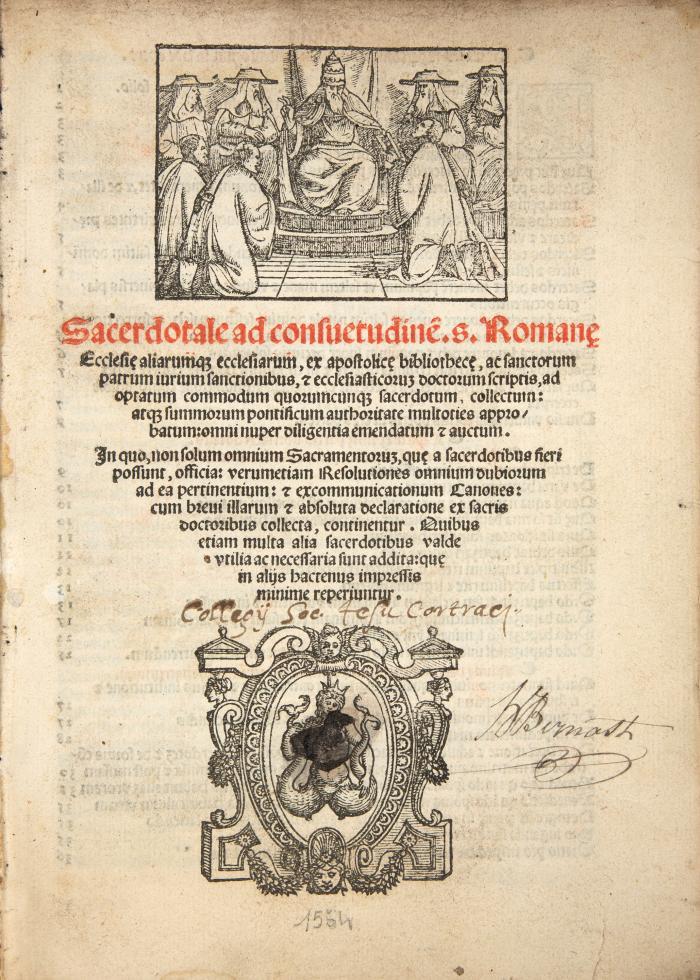 Sacerdotale ad consuetudinē.s. Romanę
Ecclesię aliarumqꝫ ecclesiarum, ex apostolicę bibliothecę, ac sanctorum
patrum iurium sanctionibus, ⁊ ecclesiasticoruꝫ doctorum scriptis, ad
optatum commodum quorumcunqꝫ sacerdotum, collectum:
atqꝫ summorum pontificum authoritate multoties appro/
batum: omni nuper diligentia emendatum ⁊ auctum.
In quo, non solum omnium Sacramentoruꝫ, quę a sacerdotibus fieri
possunt, officia: verumetiam Resolutiones omnium dubiorum
ad ea pertinentium: ⁊ excommunicationum Canones:
cum breui illarum ⁊ absoluta declaratione ex sacris
doctoribus collecta, continentur. Quibus
etiam multa alia sacerdotibus valde
vtilia ac necessaria sunt addita: quę
in alijs hactenus impressis
minime reperiuntur.
Collegij Soc. Jesu Cortraci.
1554